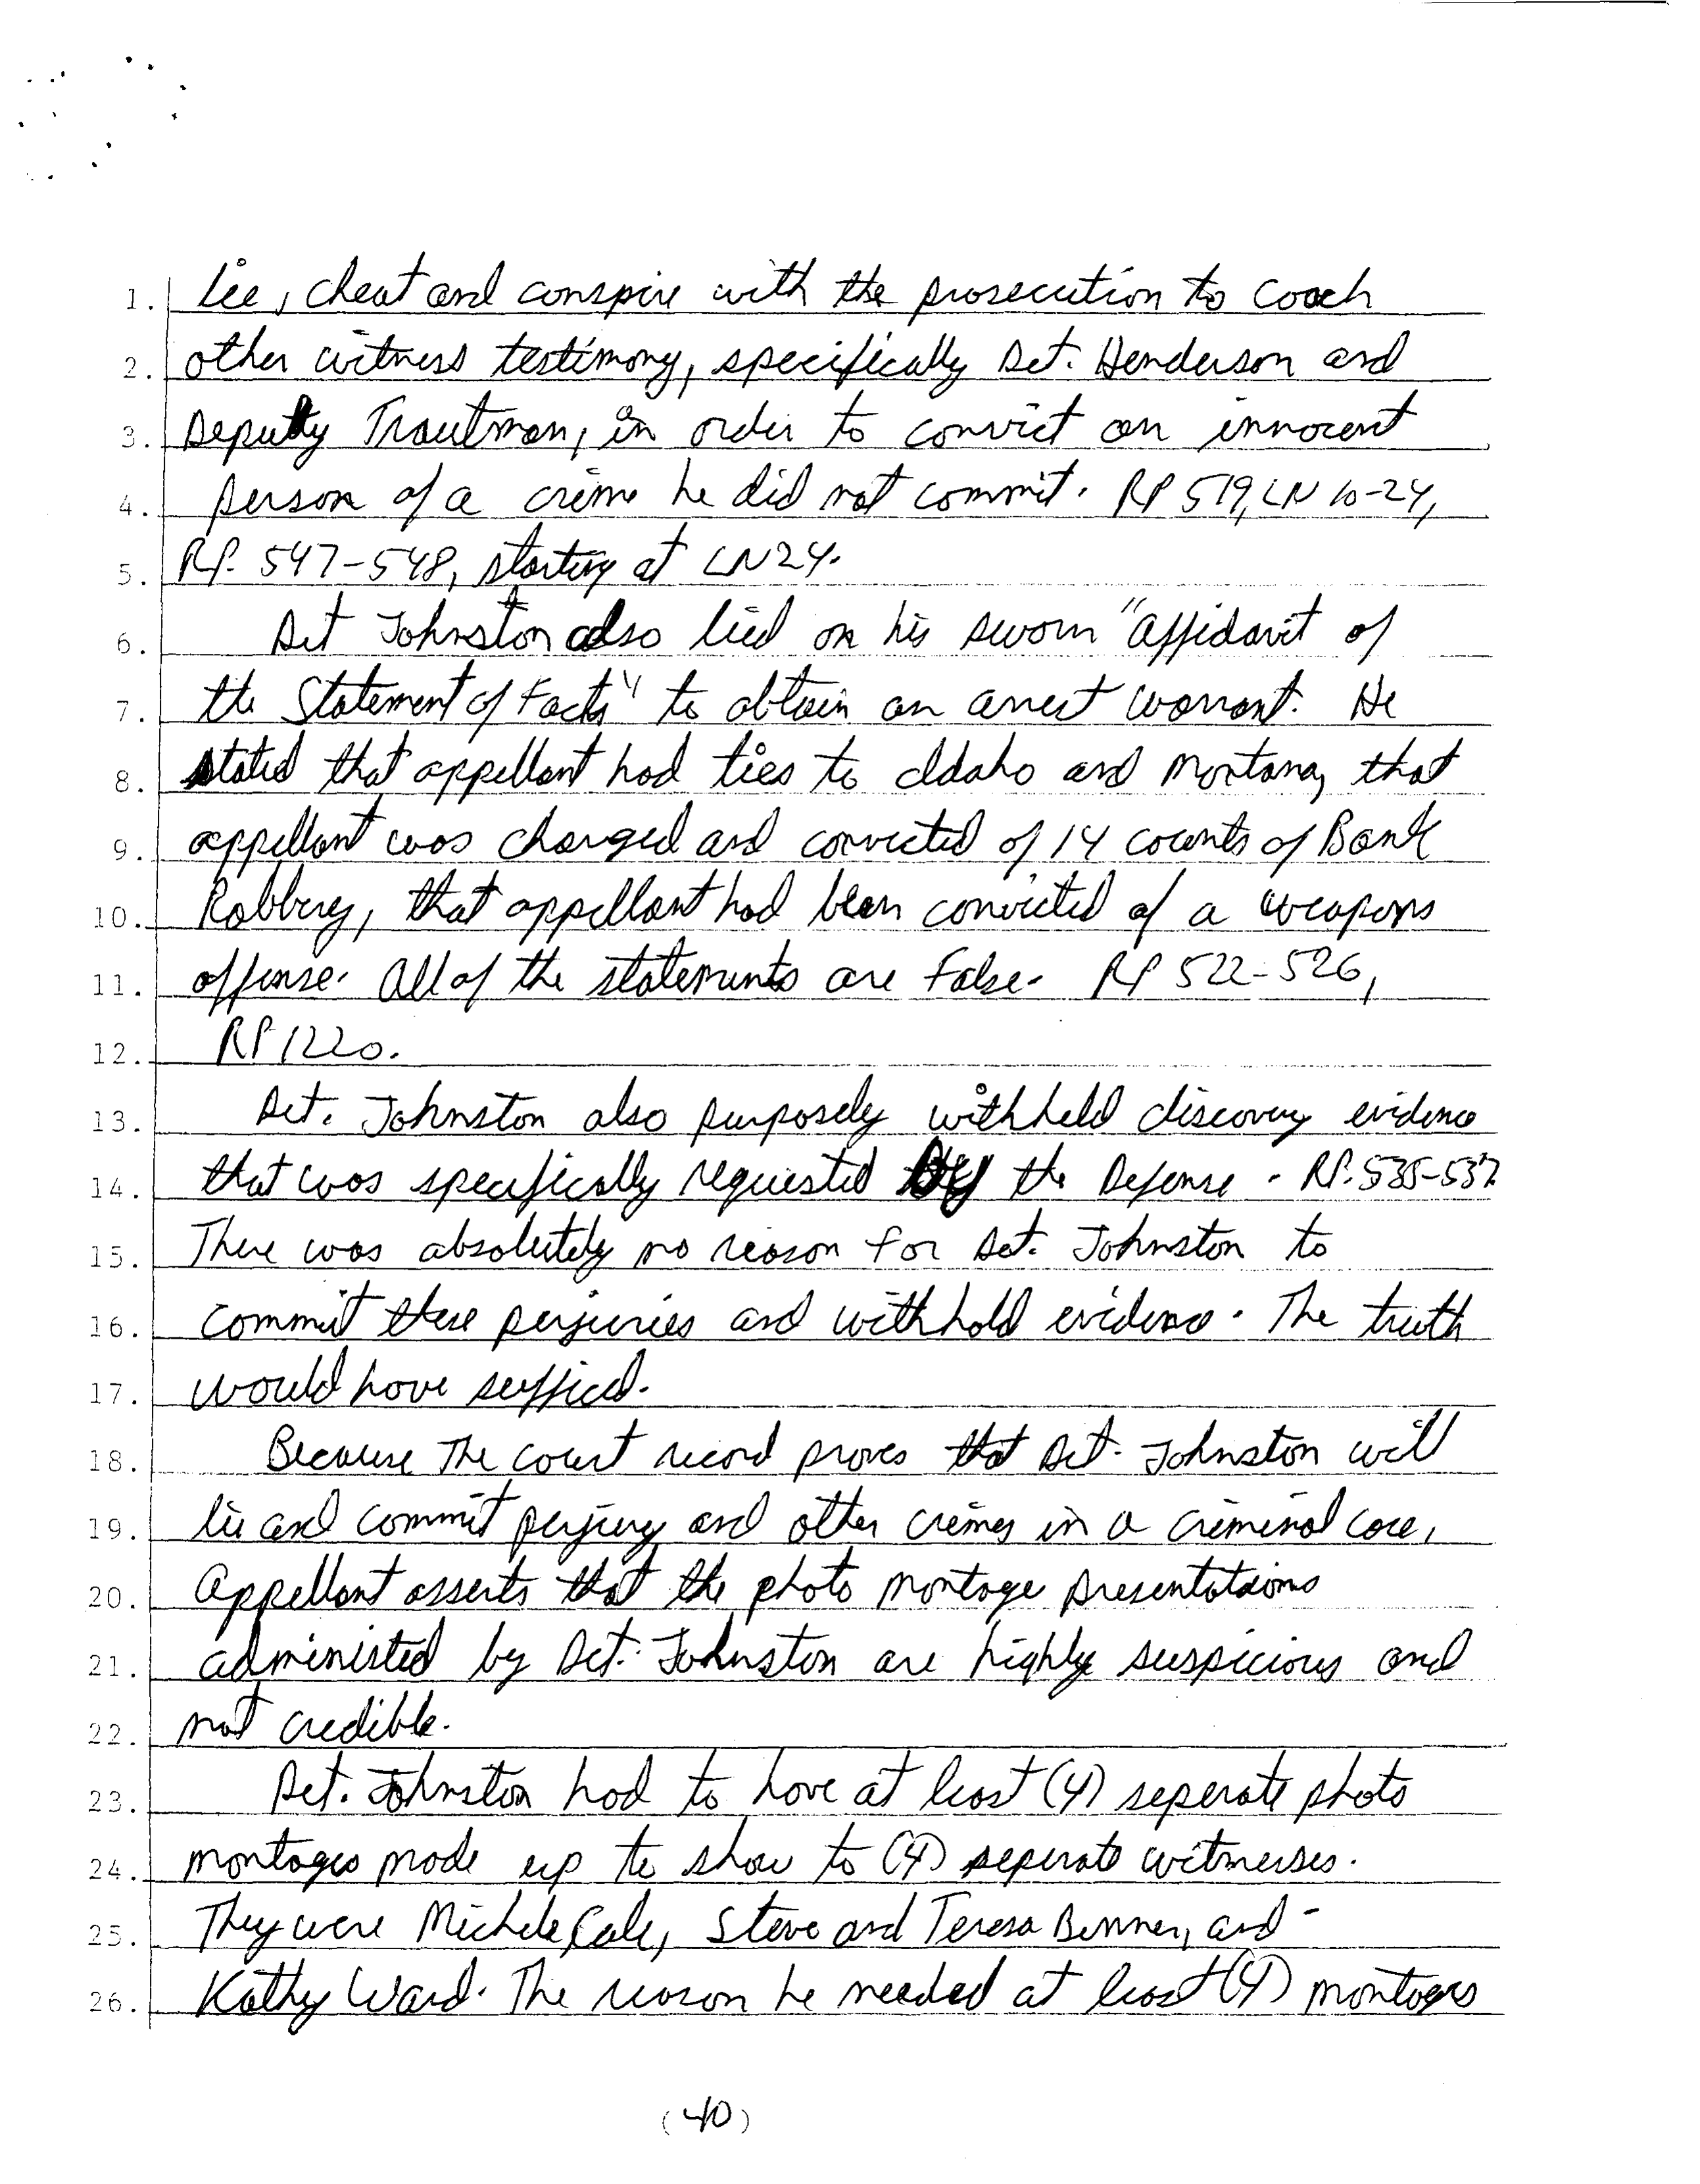 1. lie, cheat and conspire with the prosecution to coach
2. other witness testimony, specifically Det. Henderson and
3. Deputy Trautman, in order to convict an innocent
4. person of a crime he did not commit. RP 519, LN 10-24,
5. RP. 547-548, starting at LN24.
6. Det Johnston also lied on his sworn "affidavit of
7. the Statement of Facts" to obtain an arrest warrant. He
8. stated that appellant had ties to Idaho and Montana, that
9. appellant was charged and convicted of 14 counts of Bank
10. Robbery, that appellant had been convicted of a weapons
11. offense. All of the statements are False. RP 522-526,
12. RP 1220.
13. Det. Johnston also purposely withheld discovery evidence
14. that was specifically requested by the Defense. RP. 535-537
15. There was absolutely no reason for Det. Johnston to
16. commit these perjuries and withhold evidence. The truth
17. would have sufficed.
18. Because The court record proves that Det. Johnston will
19. lie and commit perjury and other crimes in a criminal case,
20. Appellant asserts that the photo montage presentations
21. administed by Det. Johnston are highly suspicious and
22. not credible.
23. Det. Johnston had to have at least (4) seperate photo
24. montages made up to show to (4) seperate witnesses.
25. They were Michele Cale, Steve and Teresa Benner, and -
26. Kathy Ward. The reason he needed at least (4) montages
(40)